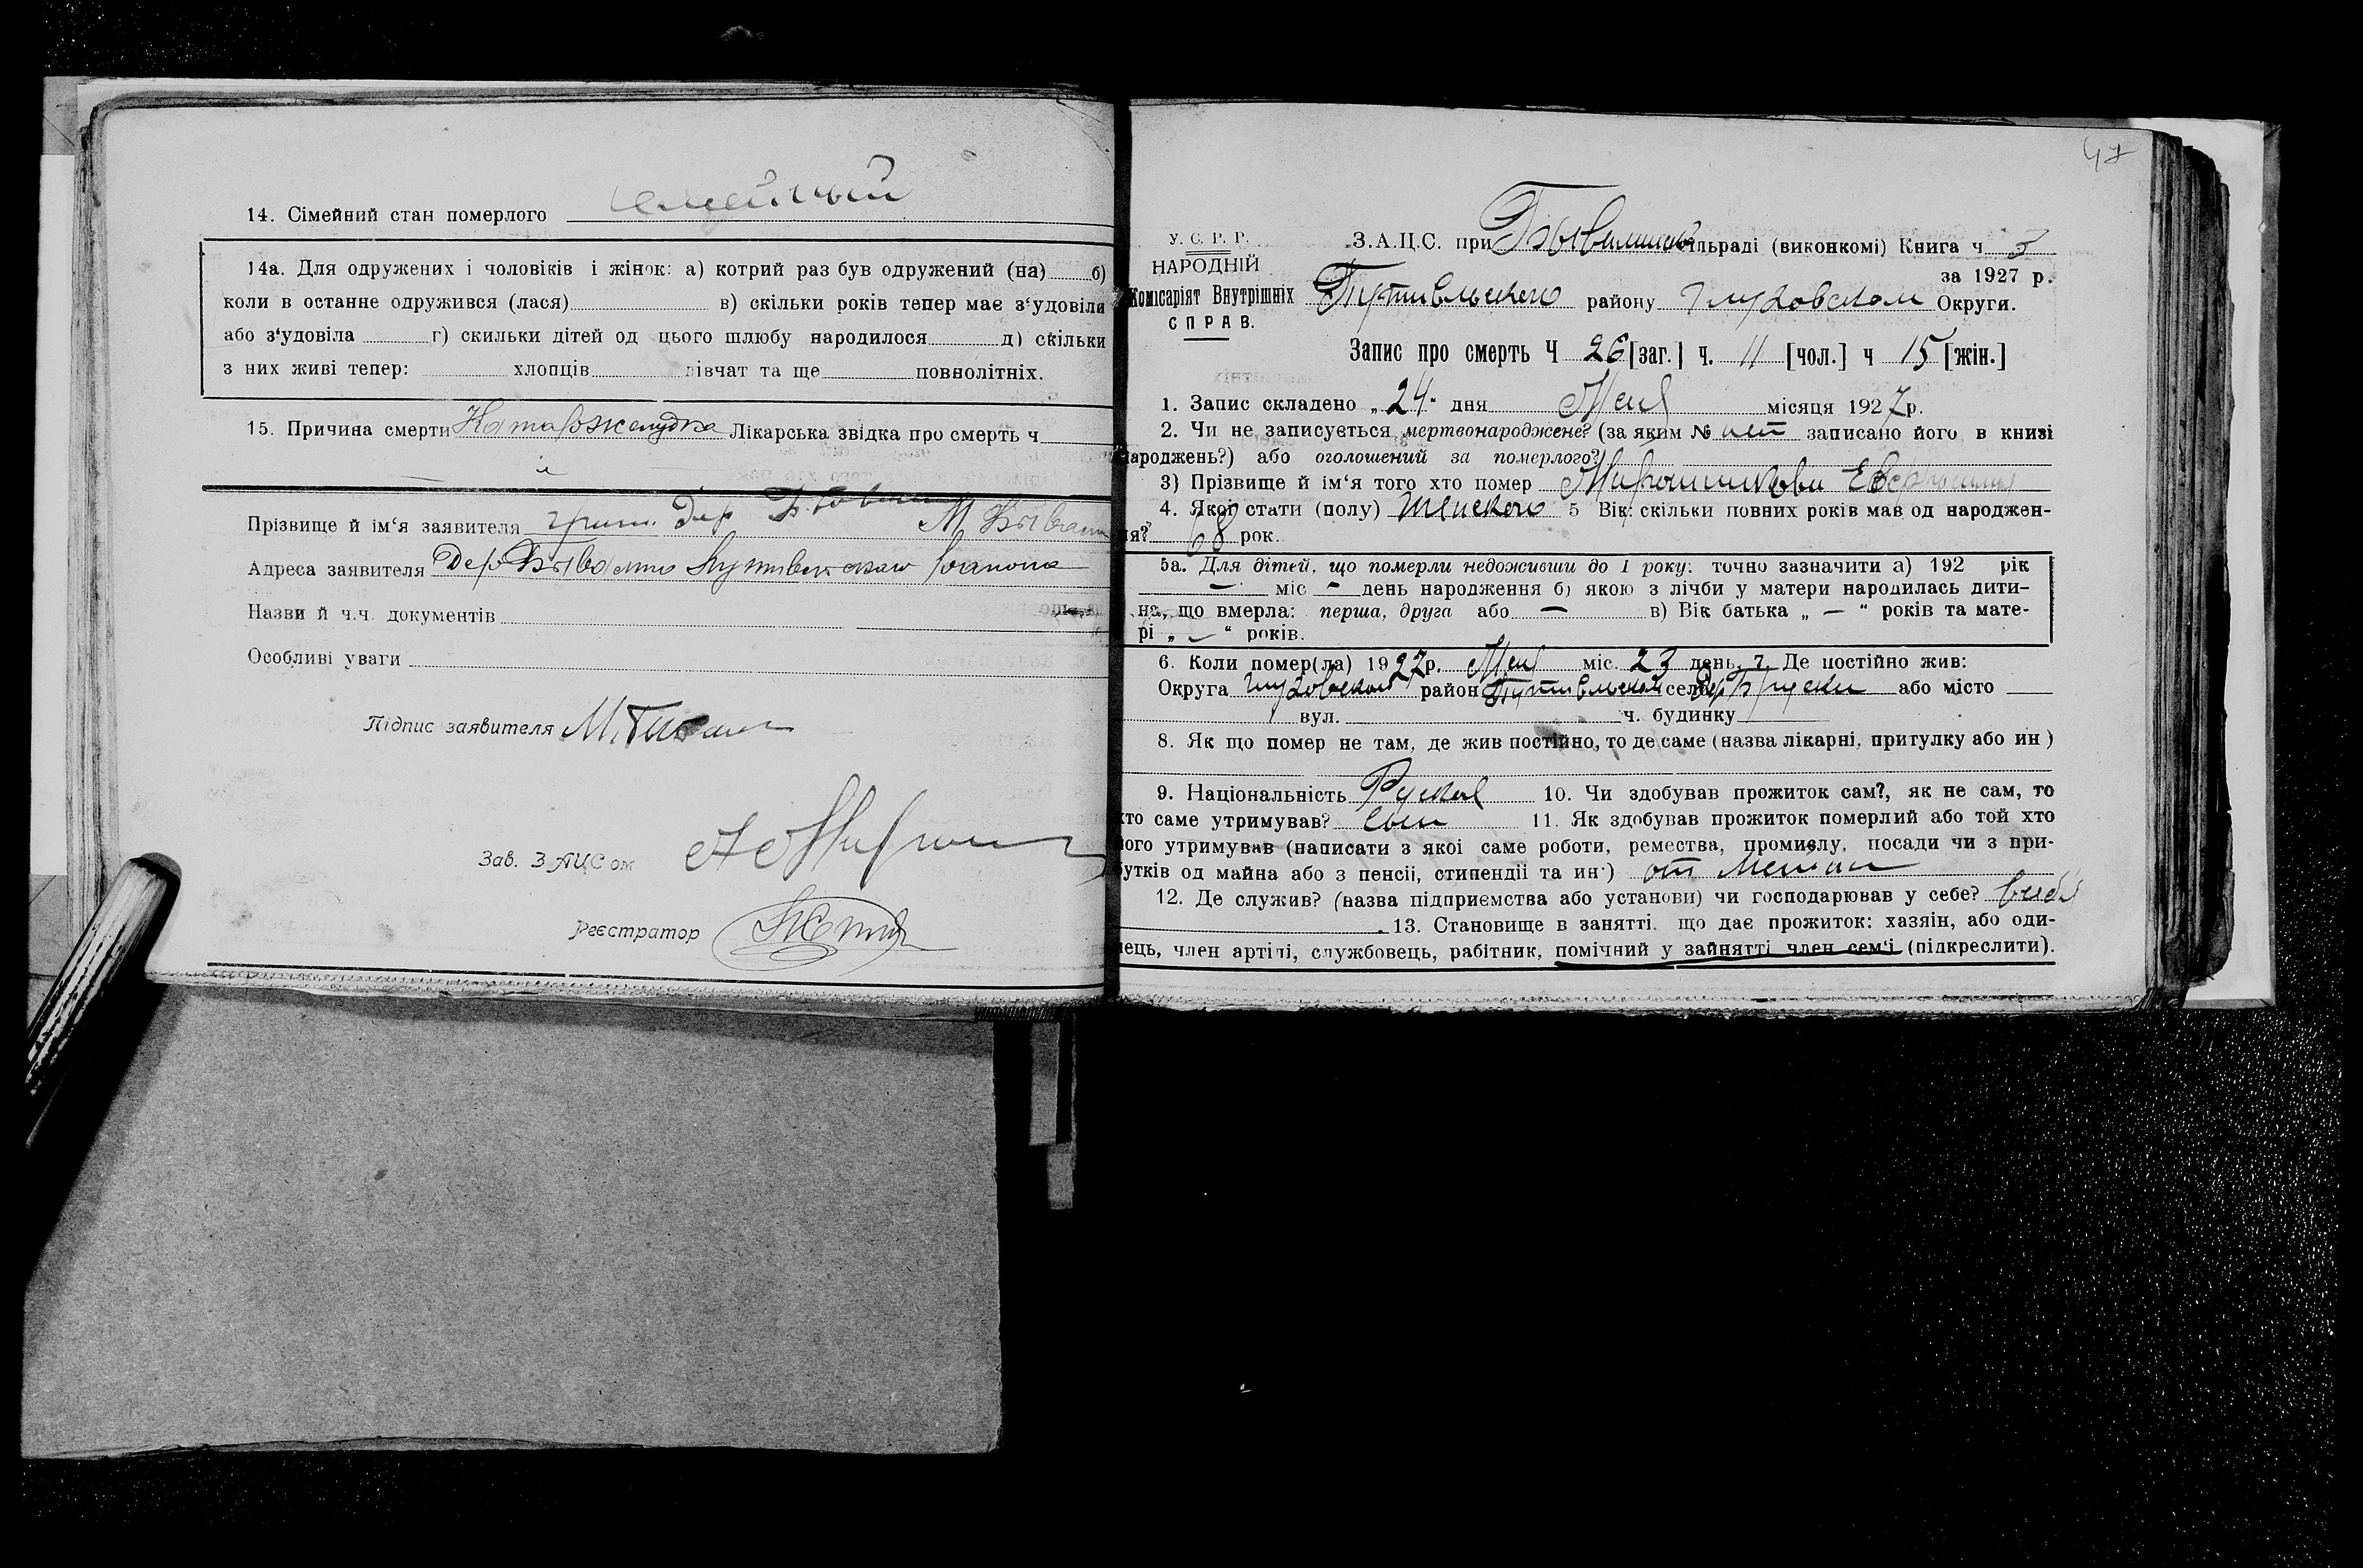 14. Сімейний стан померлого
14а. Для одружених і чоловіків і жінок: а) котрий раз був одружений (на) б)
коли в останне одружився (лася) в) скільки років тепер має з‘удовіли
або з‘удовіла г) скильки дітей од цього шлюбу народилося д) скільки
з них живі тепер: хлопців дівчат та ще повнолітніх.
15. Причина смерти Катар желудка Лікарська звідка про смерть ч
Прізвище й ім‘я заявителя
Адреса заявителя Дер
Назви й ч.ч. документів
Особливі уваги
Підпис заявителя
Зав. ЗАЦСом
Реєстратор
47
У. С. Р. Р.
НАРОДНІЙ
Комісаріят Внутрішніх
СПРАВ.
З.А.Ц.С. при сільраді (виконкомі) Книга ч 3
за 1927 р.
Путивльского району Глуховском Округи.
Запис про смерть Ч 26 [заг.] ч. 11 [чол.] ч 15 [жін.]
1. Запис складено „24“ дня Мея місяця 1927 р.
2. Чи не записується мертвонароджене? (за яким № нет записано його в книзі
народжень?) або оголошений за померлого?
3) Прізвище й ім‘я того хто помер Мирошникова
4. Якої стати (полу) Женского 5 Вік: скільки повних років мав од народжен-
ня? 68 рок.
5а. Для дітей, що померли недоживши до 1 року: точно зазначити а) 192 рік
— міс — день народження б) якою з лічби у матери народилась дити-
на, що вмерла: перша, друга або — в) Вік батька „ — “ років та мате-
рі „ — “ років.
6. Коли помер(ла) 1927 р. Мея міс. 23 день. 7. Де постійно жив:
Округа Глуховском район Путивльском село дер Бруски або місто
вул. ч. будинку
8. Як що помер не там, де жив постійно, то де саме (назва лікарні, притулку або ин)
9. Національність Руская 10. Чи здобував прожиток сам?, як не сам, то
хто саме утримував? Сын 11. Як здобував прожиток померлий або той хто
його утримував (написати з якої саме роботи, ремества, промислу, посади чи з при-
бутків од майна або з пенсії, стипендії та ин.) от
12. Де служив? (назва підприємства або установи) чи господарював у себе?
13. Становище в занятті, що дає прожиток: хазяїн, або оди-
нець, член артілі, службовець, рабітник, помічний у зайнятті член сем‘ї (підкреслити).